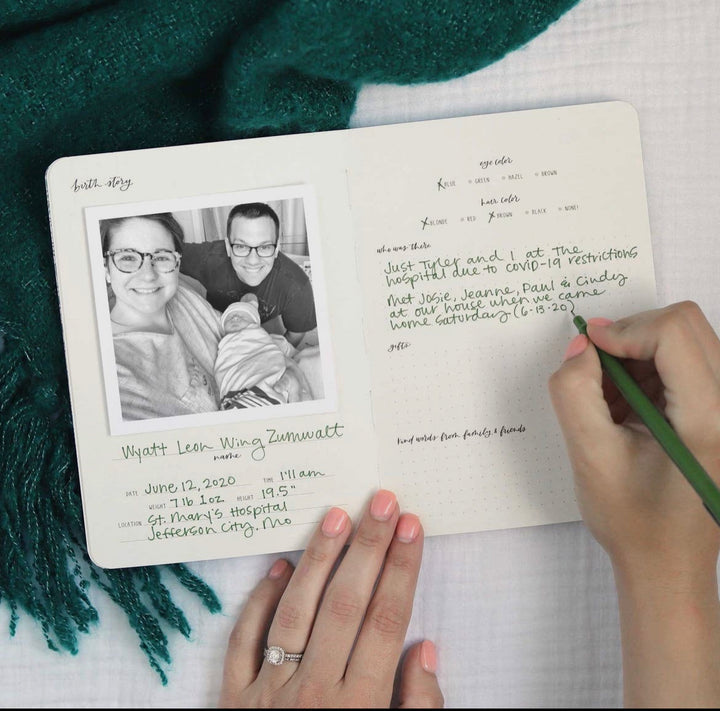 birth story
Wyatt Leon Wing Zumwalt
name
DATE June 12, 2020 TIME 1:11 am
WEIGHT 7 lb 1oz HEIGHT 19.5"
LOCATION St. Mary's Hospital
Jefferson City, Mo
eye color
X BLUE GREEN HAZEL BROWN
hair color
X BLONDE RED X BROWN BLACK NONE!
who was there
Just Tyler and I at the
hospital due to COVID-19 restrictions
Met Josie, Jeanne, Paul & Cindy
at our house when we came
home Saturday (6-13-20)
gifts
kind words from family & friends